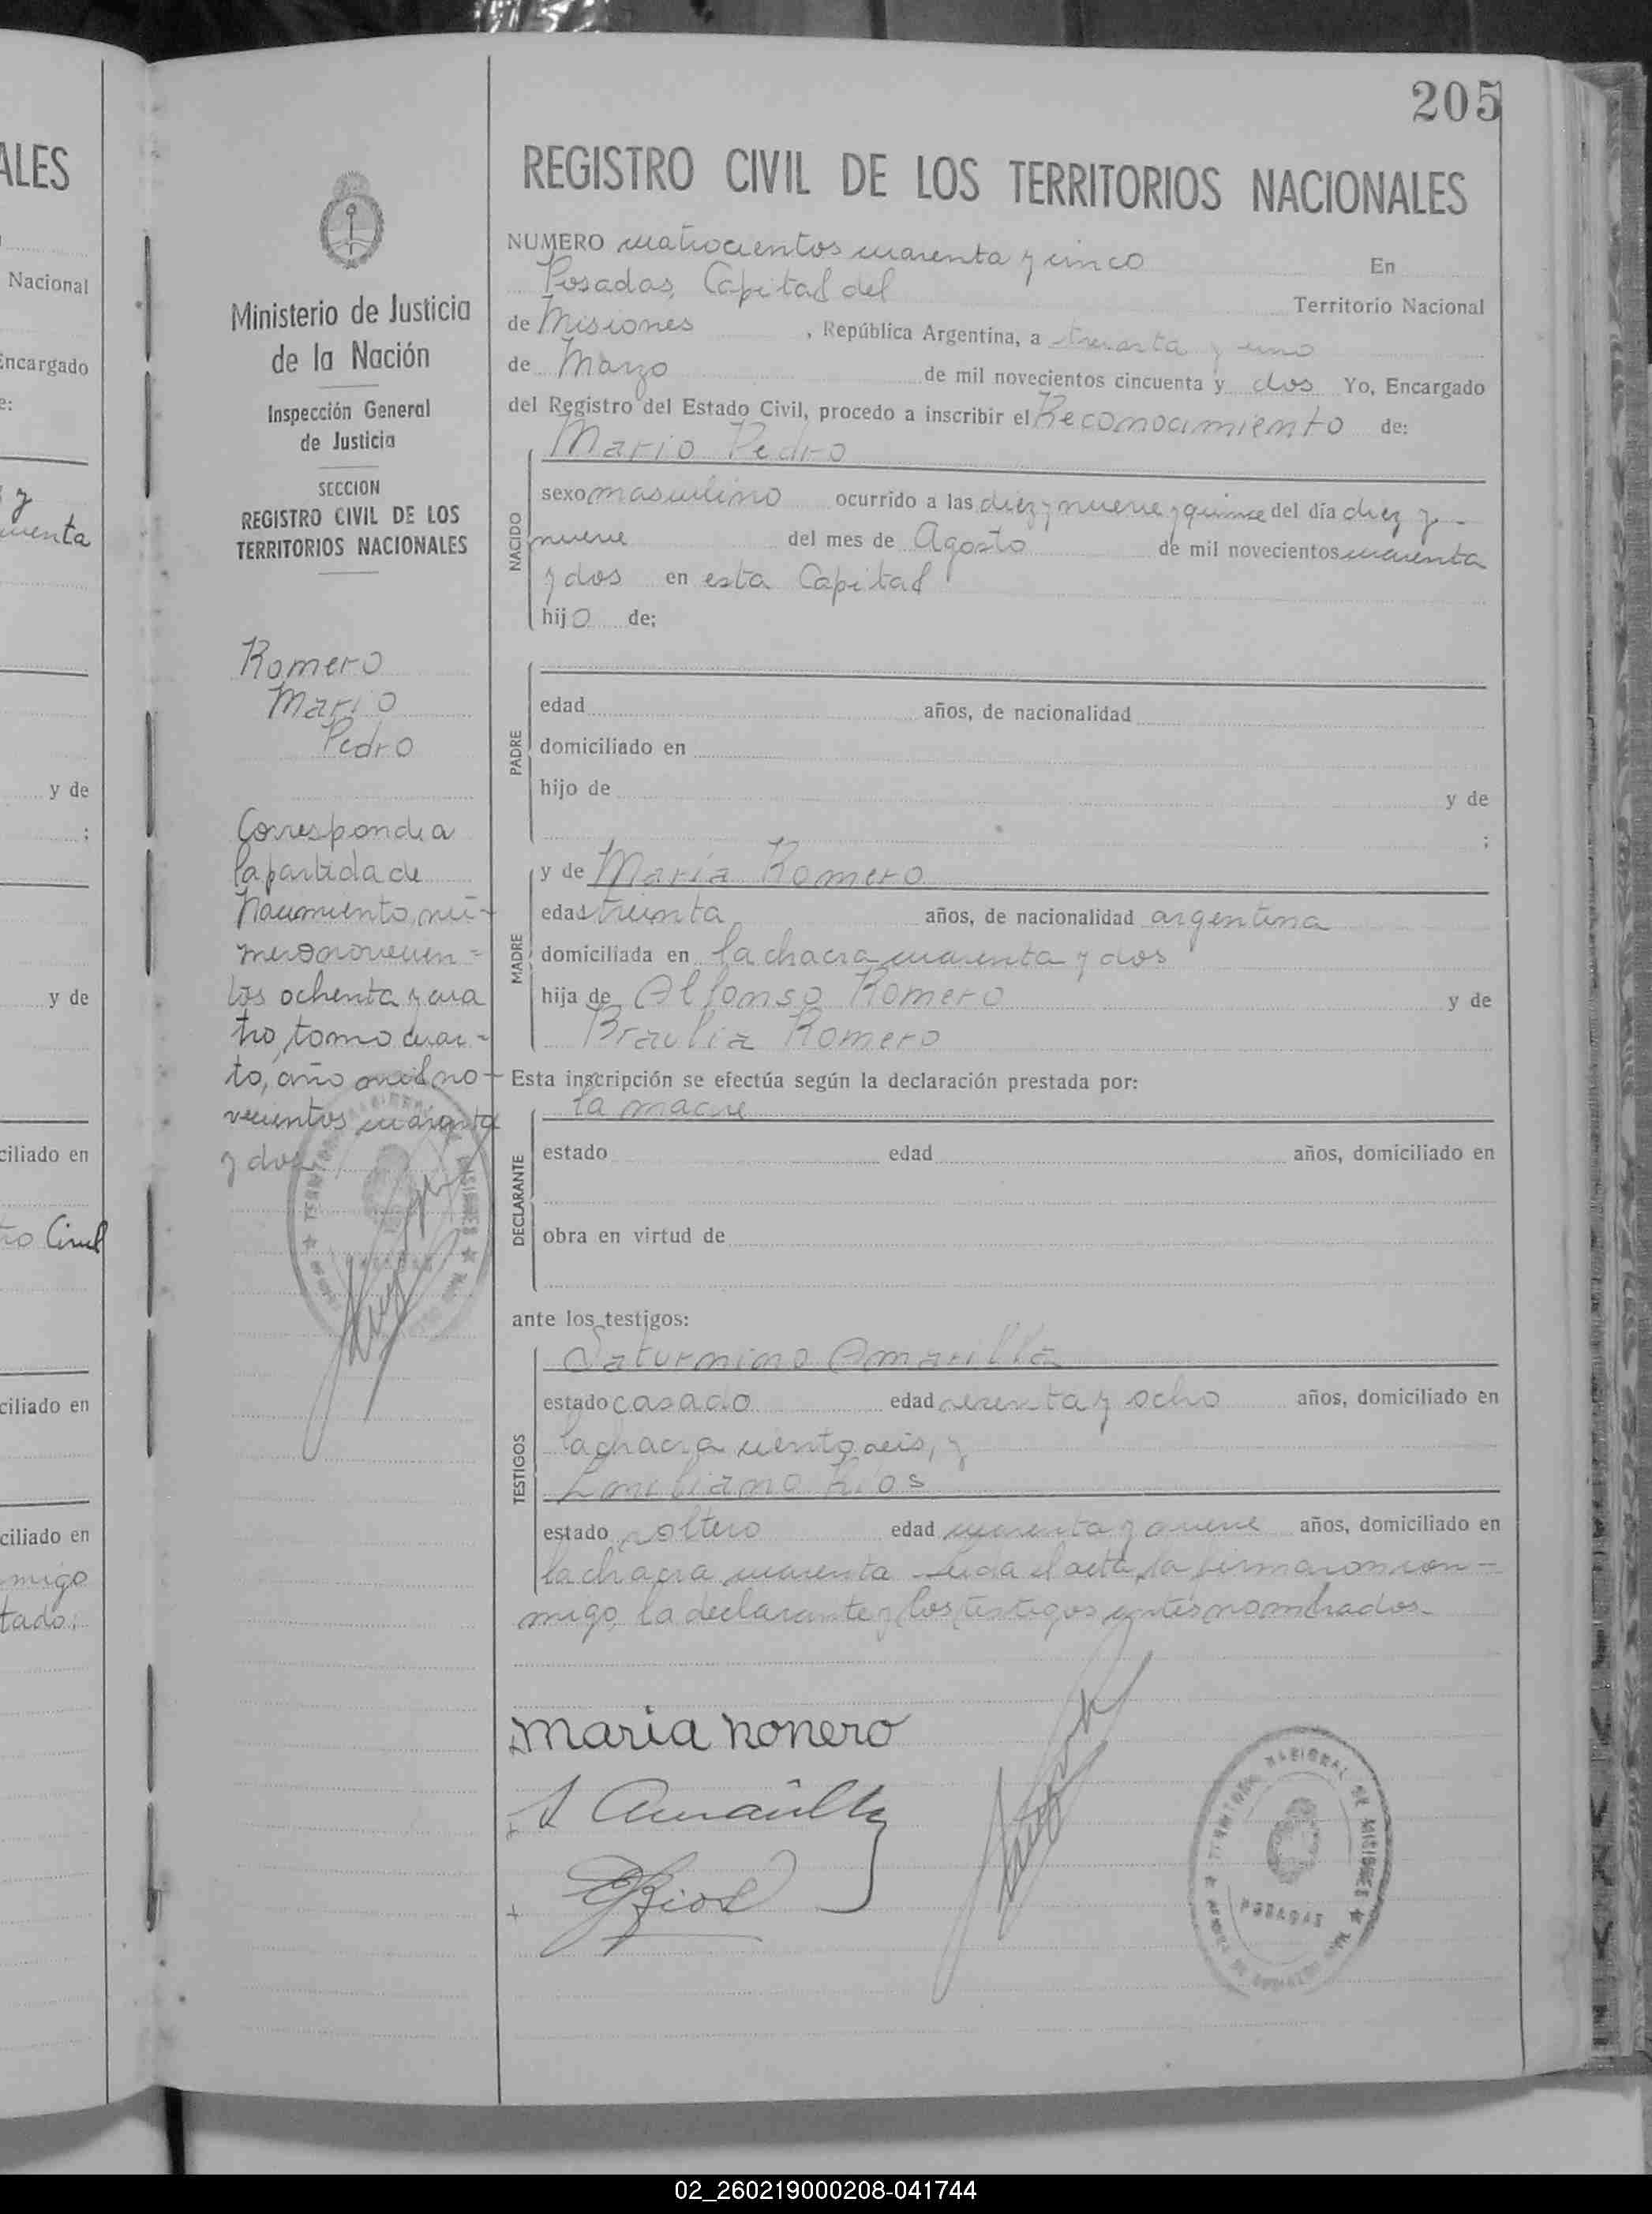 205
ALES
Nacional
Encargado
e:
y
uenta
y de
;
y de
ciliado en
ro Civil
ciliado en
ciliado en
migo
tado;
Ministerio de Justicia
de la Nación
Inspección General
de Justicia
SECCION
REGISTRO CIVIL DE LOS
TERRITORIOS NACIONALES
Romero
Mario
Pedro
Corresponde a
la partida de
Nacimiento, nú-
mero novecien-
tos ochenta y cua
tro, tomo cuar-
to, año mil no-
vecientos cuarenta
y dos
REGISTRO CIVIL DE LOS TERRITORIOS NACIONALES
NUMERO cuatrocientos cuarenta y cinco En
Posadas, Capital del Territorio Nacional
de Misiones , República Argentina, a treinta y uno
de Marzo de mil novecientos cincuenta y dos Yo, Encargado
del Registro del Estado Civil, procedo a inscribir el Reconocimiento de:
Mario Pedro
NACIDO
sexo masculino ocurrido a las diez y nueve y quince del día diez y
nueve del mes de Agosto de mil novecientos cuarenta
y dos en esta Capital
hijo de:
PADRE
edad años, de nacionalidad
domiciliado en
hijo de y de
;
MADRE
y de María Romero
edad treinta años, de nacionalidad argentina
domiciliada en la chacra cuarenta y dos
hija de Alfonso Romero y de
Braulia Romero
Esta inscripción se efectúa según la declaración prestada por:
la madre
DECLARANTE
estado edad años, domiciliado en
obra en virtud de
ante los testigos:
TESTIGOS
Saturnino Amarilla
estado casado edad sesenta y ocho años, domiciliado en
la chacra ciento seis, y
Emiliano Rios
estado soltero edad cuarenta y nueve años, domiciliado en
la chacra cuarenta Leida el acta, la firmaron con-
migo, la declarante y los testigos antes nombrados.-
maria ronero
S Amarilla
E Rios
TERRITORIO NACIONAL DE MISIONES
POSADAS
02_260219000208-041744